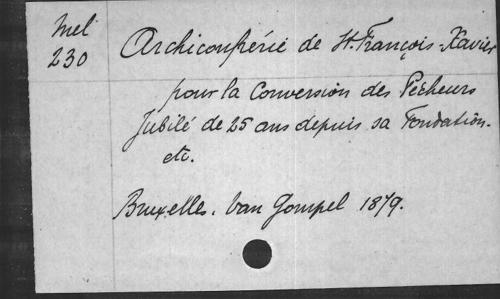 Mel
230
Archiconfrérie de St. François-Xavier
pour la Conversion des Pécheurs
Jubilé de 25 ans depuis sa Fondation.
etc.
Bruxelles. Van Gompel 1879.